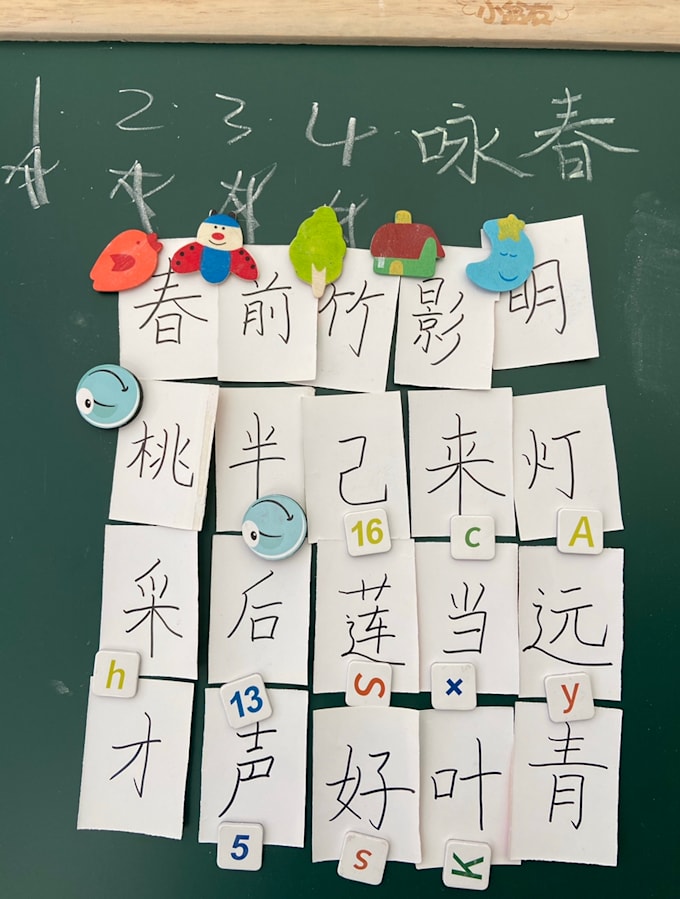 小盆友
1 2 3 4 咏春
春 前 竹 影 明
桃 半 己 来 灯
16 c A
采 后 莲 当 远
h 13 S x y
才 声 好 叶 青
5 s K